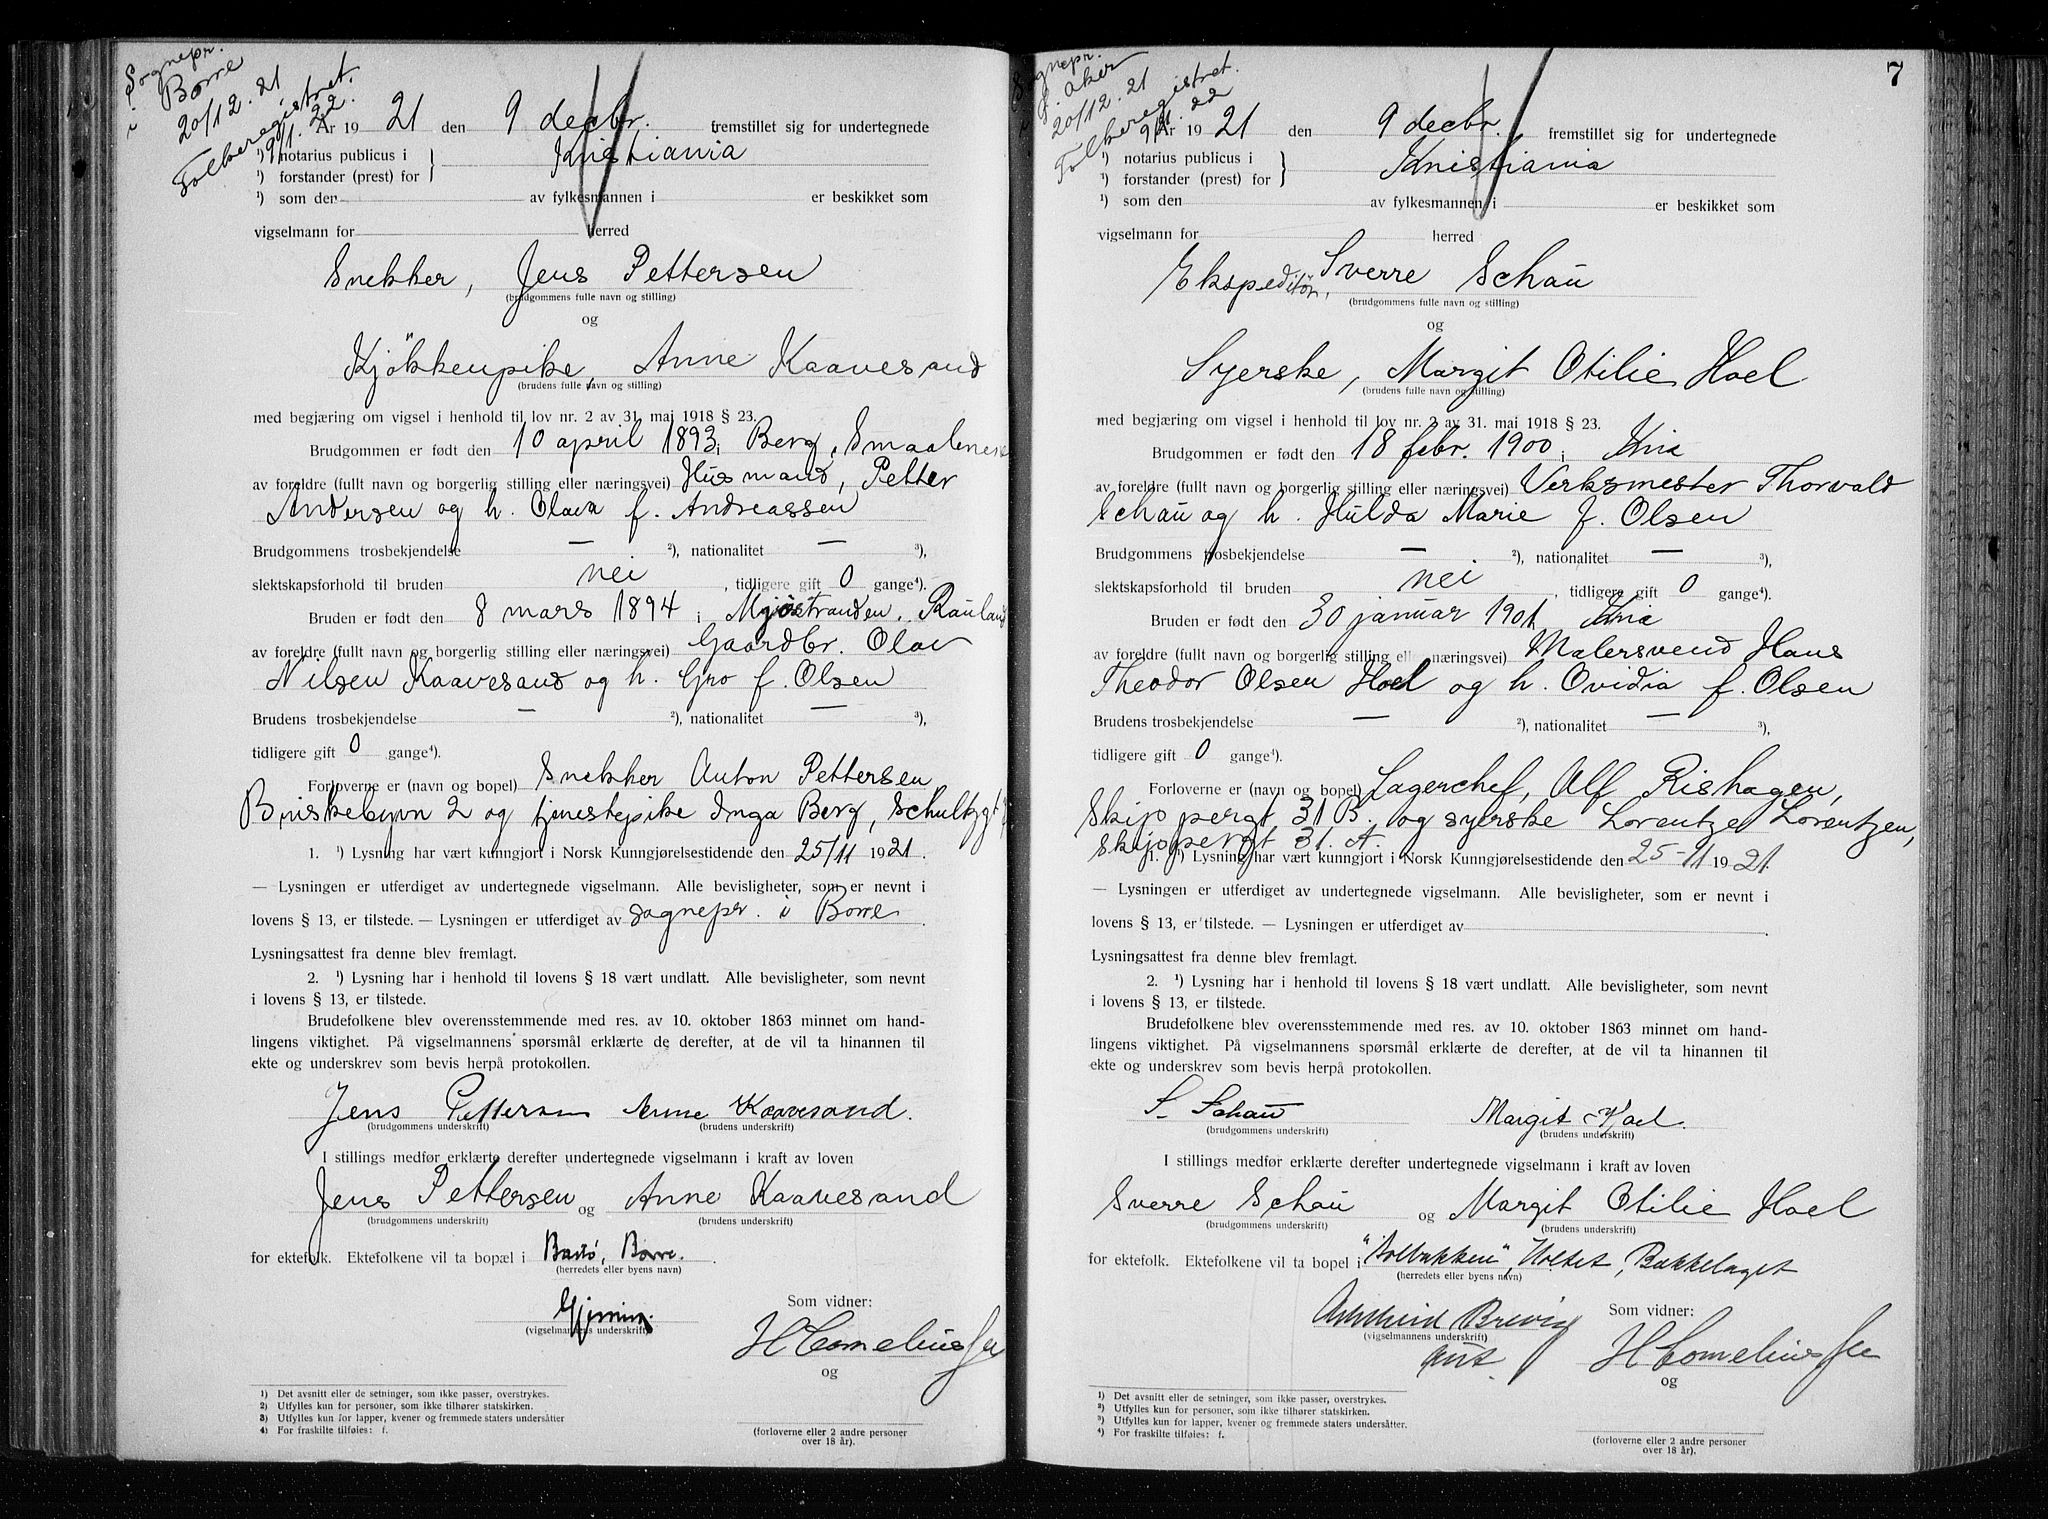 Sognepr.
i Borre
20/12. 21
Folkeregistret.
9/1. 22.
År 1921 den 9 decbr. fremstillet sig for undertegnede
¹) notarius publicus i } Kristiania
¹) forstander (prest) for }
¹) som den av fylkesmannen i er beskikket som
vigselmann for herred
Snekker, Jens Pettersen
(brudgommens fulle navn og stilling)
og
Kjökkenpike, Anne Kaavesand
(brudens fulle navn og stilling)
med begjæring om vigsel i henhold til lov nr. 2 av 31. mai 1918 § 23.
Brudgommen er født den 10 april 1893 i Berg, Smaalenene
av foreldre (fullt navn og borgerlig stilling eller næringsvei) Husmand, Petter
Andersen og h. Olava f. Andreassen
Brudgommens trosbekjendelse — ²), nationalitet — ³),
slektskapsforhold til bruden nei, tidligere gift 0 gange⁴).
Bruden er født den 8 mars 1894 i Mjøstranden, Rauland
av foreldre (fullt navn og borgerlig stilling eller næringsvei) Gaardbr. Olav
Nilsen Kaavesand og h. Gro f. Olsen
Brudens trosbekjendelse — ²), nationalitet — ³),
tidligere gift 0 gange⁴).
Forloverne er (navn og bopel) Snekker Anton Pettersen,
Briskebyvn 2 og tjenestepike Inga Berg, Schultzgt
1. ¹) Lysning har vært kunngjort i Norsk Kunngjørelsestidende den 25/11 1921.
— Lysningen er utferdiget av undertegnede vigselmann. Alle bevisligheter, som er nevnt i
lovens § 13, er tilstede. — Lysningen er utferdiget av sognepr. i Borre.
Lysningsattest fra denne blev fremlagt.
2. ¹) Lysning har i henhold til lovens § 18 vært undlatt. Alle bevisligheter, som nevnt
i lovens § 13, er tilstede.
Brudefolkene blev overensstemmende med res. av 10. oktober 1863 minnet om hand-
lingens viktighet. På vigselmannens spørsmål erklærte de derefter, at de vil ta hinannen til
ekte og underskrev som bevis herpå protokollen.
Jens Pettersen Anne Kaavesand.
(brudgommens underskrift) (brudens underskrift)
I stillings medfør erklærte derefter undertegnede vigselmann i kraft av loven
Jens Pettersen og Anne Kaavesand
(brudgommens underskrift) (brudens underskrift)
for ektefolk. Ektefolkene vil ta bopæl i Bastø, Borre.
(herredets eller byens navn)
Som vidner:
(vigselmannens underskrift)
H Cornelius
og
1) Det avsnitt eller de setninger, som ikke passer, overstrykes.
2) Utfylles kun for personer, som ikke tilhører statskirken.
3) Utfylles kun for lapper, kvener og fremmede staters undersåtter
4) For fraskilte tilføies: f.
(forloverne eller 2 andre personer
over 18 år).
7
Sognepr.
i Ø. Aker
20/12. 21
Folkeregistret.
9/1. 22
År 1921 den 9 decbr. fremstillet sig for undertegnede
¹) notarius publicus i } Kristiania
¹) forstander (prest) for }
¹) som den av fylkesmannen i er beskikket som
vigselmann for herred
Ekspeditör, Sverre Schau
(brudgommens fulle navn og stilling)
og
Syerske, Margit Otilie Hoel
(brudens fulle navn og stilling)
med begjæring om vigsel i henhold til lov nr. 2 av 31. mai 1918 § 23.
Brudgommen er født den 18 febr. 1900 i Kria
av foreldre (fullt navn og borgerlig stilling eller næringsvei) Verksmester Thorvald
Schau og h. Hulda Marie f. Olsen
Brudgommens trosbekjendelse — ²), nationalitet — ³),
slektskapsforhold til bruden nei, tidligere gift 0 gange⁴).
Bruden er født den 30 januar 1901 i Kria
av foreldre (fullt navn og borgerlig stilling eller næringsvei) Malersvend Hans
Theodor Olsen Hoel og h. Ovidia f. Olsen
Brudens trosbekjendelse — ²), nationalitet — ³),
tidligere gift 0 gange⁴).
Forloverne er (navn og bopel) Lagerchef, Alf Rishagen,
Skippergt 31 B. og syerske Lorentze Lorentzen,
Skippergt 31. A.
1. ¹) Lysning har vært kunngjort i Norsk Kunngjørelsestidende den 25-11 1921.
— Lysningen er utferdiget av undertegnede vigselmann. Alle bevisligheter, som er nevnt i
lovens § 13, er tilstede. — Lysningen er utferdiget av
Lysningsattest fra denne blev fremlagt.
2. ¹) Lysning har i henhold til lovens § 18 vært undlatt. Alle bevisligheter, som nevnt
i lovens § 13, er tilstede.
Brudefolkene blev overensstemmende med res. av 10. oktober 1863 minnet om hand-
lingens viktighet. På vigselmannens spørsmål erklærte de derefter, at de vil ta hinannen til
ekte og underskrev som bevis herpå protokollen.
S. Schau Margit Hoel.
(brudgommens underskrift) (brudens underskrift)
I stillings medfør erklærte derefter undertegnede vigselmann i kraft av loven
Sverre Schau og Margit Otilie Hoel
(brudgommens underskrift) (brudens underskrift)
for ektefolk. Ektefolkene vil ta bopel i "Solbakken", Holtet, Bekkelaget
(herredets eller byens navn)
Som vidner:
Brevig
(vigselmannens underskrift)
H Cornelius
og
1) Det avsnitt eller de setninger, som ikke passer, overstrykes.
2) Utfylles kun for personer, som ikke tilhører statskirken.
3) Utfylles kun for lapper, kvener og fremmede staters undersåtter.
4) For fraskilte tilføies: f.
(forloverne eller 2 andre personer
over 18 år).